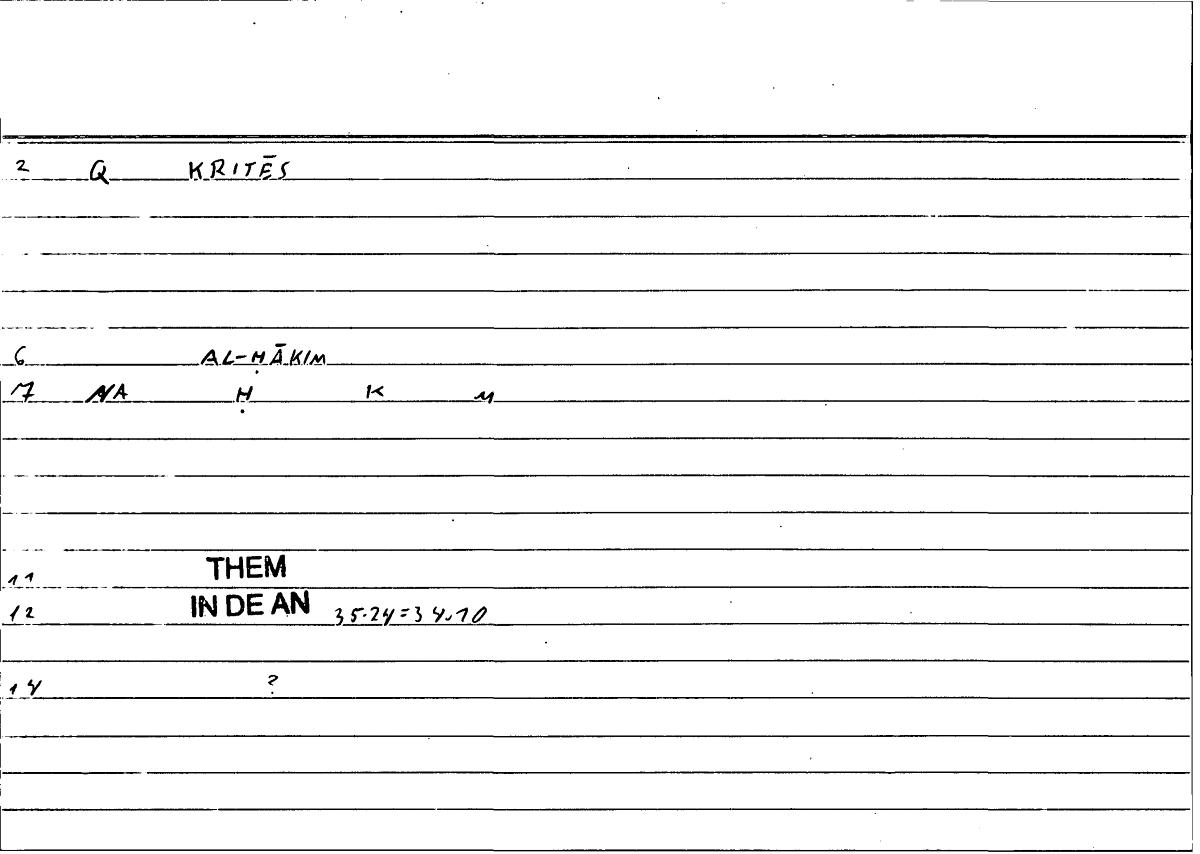 2 Q KRITĒS
6 AL-ḤĀKIM
7 NA Ḥ K M
11 THEM
12 IN DE AN 35.24=34.10
14 ?